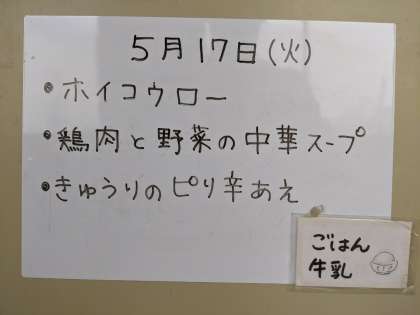 5月17日(火)
・ホイコウロー
・鶏肉と野菜の中華スープ
・きゅうりのピリ辛あえ
ごはん
牛乳